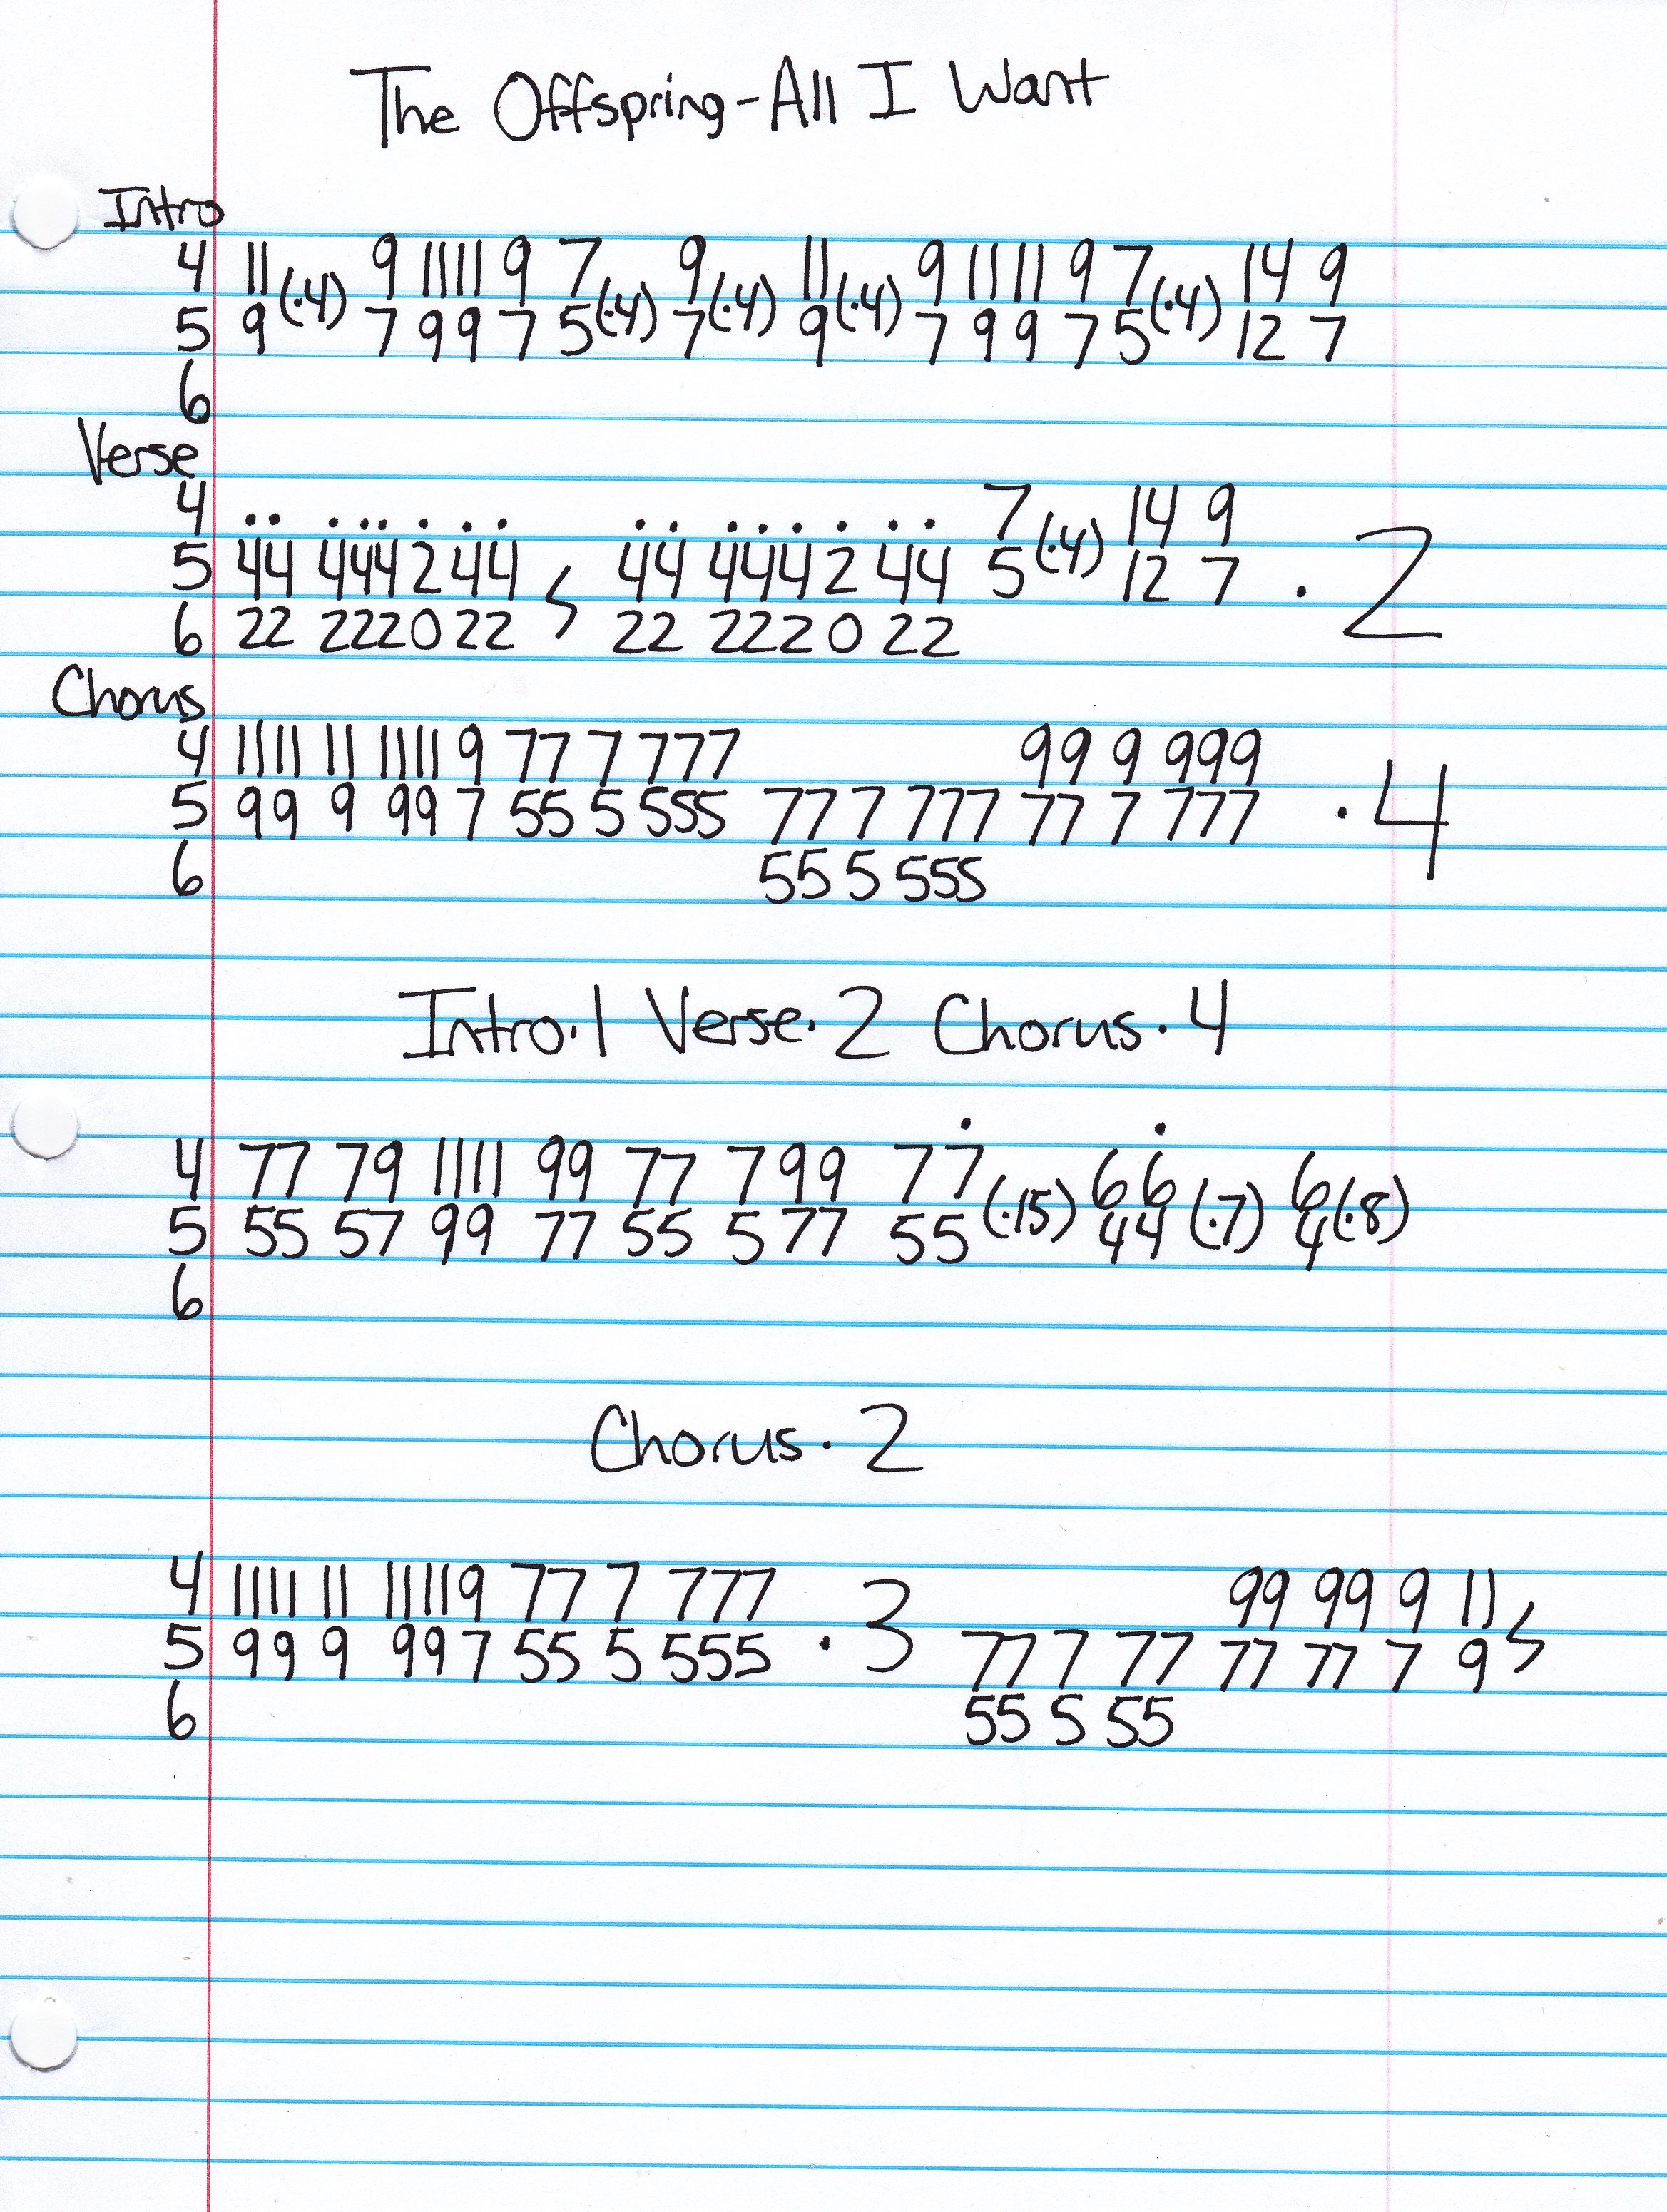 The Offspring-All I Want
Intro
4 11(·4) 9 11 11 9 7(·4) 9(·4) 11(·4) 9 11 11 9 7(·4) 14 9
5 9 7 9 9 7 5 7 9 7 9 9 7 5 12 7
6
Verse
4 .. ... . .. .. ... . .. 7(·4) 14 9
5 44 444 2 44 44 444 2 44 5 12 7 · 2
6 22 222 0 22 22 222 0 22
Chorus
4 1111 11 1111 9 77 7 777 99 9 999
5 99 9 99 7 55 5 555 77 7 777 77 7 777 · 4
6 55 5 555
Intro·1 Verse·2 Chorus·4
4 77 79 1111 99 77 799 77(·15) 66(·7) 6(·8)
5 55 57 99 77 55 577 55 44 4
6
Chorus·2
4 1111 11 11119 77 7 777 99 99 9 11
5 99 9 997 55 5 555 · 3 77 7 77 77 77 7 9
6 55 5 55